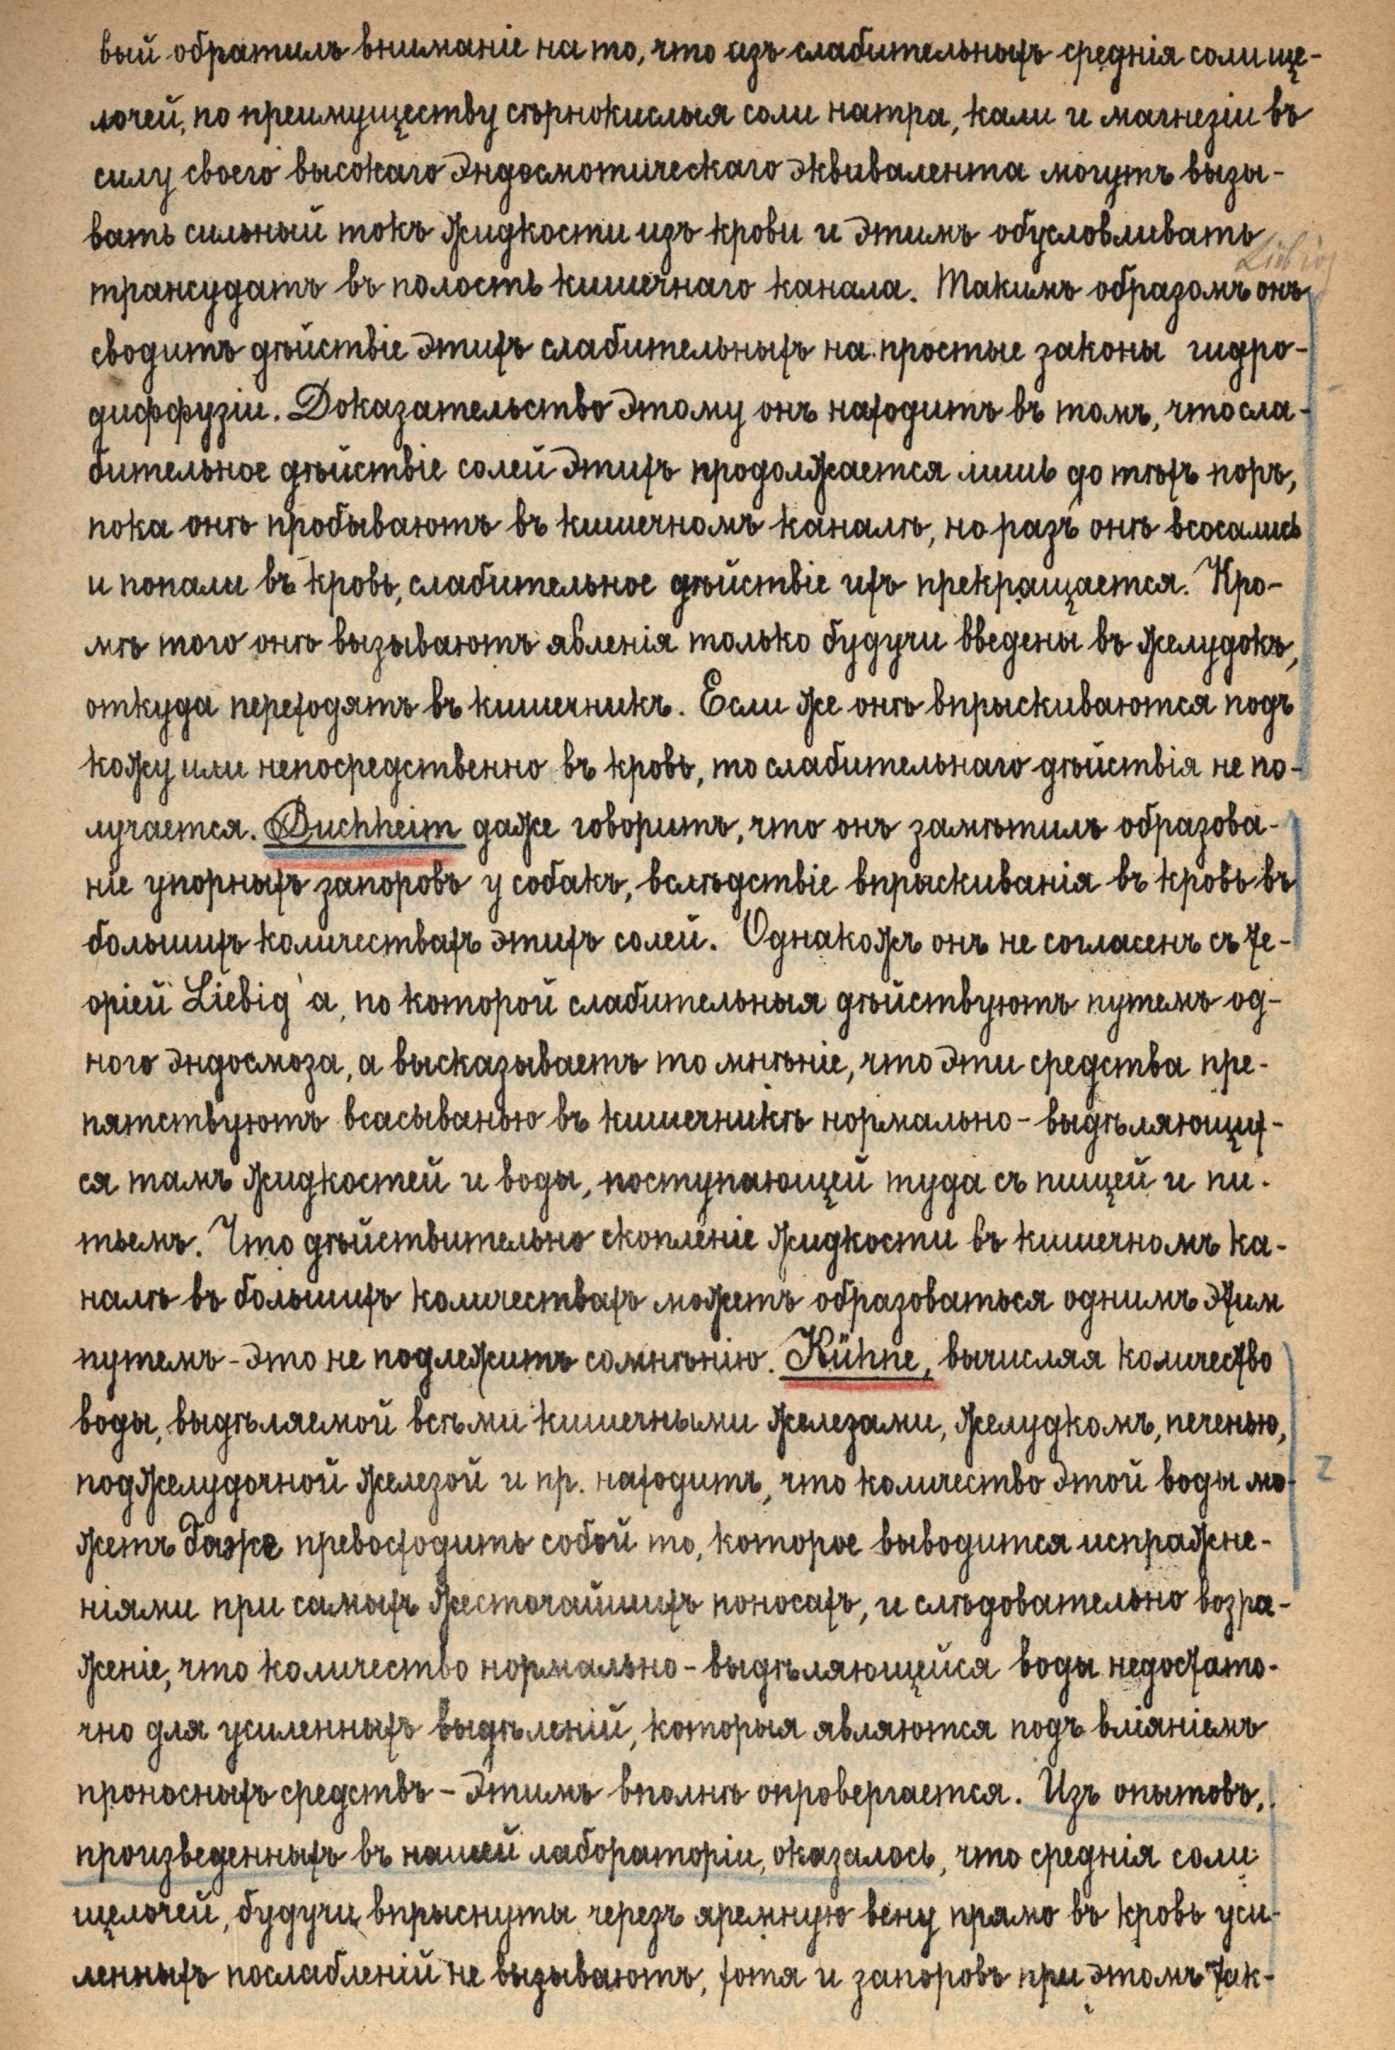 вый обратилъ вниманіе на то, что изъ слабительныхъ среднія соли ще-
лочей, по преимуществу сѣрнокислыя соли натра, кали и магнезіи въ
силу своего высокаго эндосмотическаго эквивалента могутъ вызы-
вать сильный токъ жидкости изъ крови и этимъ обусловливать
Liebig
трансудатъ въ полость кишечнаго канала. Такимъ образомъ онъ
сводитъ дѣйствіе этихъ слабительныхъ на простые законы гидро-
диффузіи. Доказательство этому онъ находитъ въ томъ, что сла-
бительное дѣйствіе солей этихъ продолжается лишь до тѣхъ поръ,
пока онѣ пробываютъ въ кишечномъ каналѣ, но разъ онѣ всосались
и попали въ кровь, слабительное дѣйствіе ихъ прекращается. Кро-
мѣ того онѣ вызываютъ явленія только будучи введены въ желудокъ,
откуда переходятъ въ кишечникъ. Если же онѣ впрыскиваются подъ
кожу или непосредственно въ кровь, то слабительнаго дѣйствія не по-
лучается. Buchheim даже говоритъ, что онъ замѣтилъ образова-
ніе упорныхъ запоровъ у собакъ, вслѣдствіе впрыскиванія въ кровь въ
большихъ количествахъ этихъ солей. Однакожъ онъ не согласенъ съ те-
оріей Liebig'а, по которой слабительныя дѣйствуютъ путемъ од-
ного эндосмоза, а высказываетъ то мнѣніе, что эти средства пре-
пятствуютъ всасыванью въ кишечникѣ нормально-выдѣляющих-
ся тамъ жидкостей и воды, поступающей туда съ пищей и пи-
тьемъ. Что дѣйствительно скопленіе жидкости въ кишечномъ ка-
налѣ въ большихъ количествахъ можетъ образоваться однимъ этим
путемъ - это не подлежитъ сомнѣнію. Kühne, вычисляя количество
воды, выдѣляемой всѣми кишечными железами, желудкомъ, печенью,
поджелудочной железой и пр. находитъ, что количество этой воды мо-
жетъ даже превосходить собой то, которое выводится испражне-
ніями при самыхъ жесточайшихъ поносахъ, и слѣдовательно возра-
женіе, что количество нормально-выдѣляющейся воды недостато-
чно для усиленныхъ выдѣленій, которыя являются подъ вліяніемъ
проносныхъ средствъ - этимъ вполнѣ опровергается. Изъ опытовъ,
произведенныхъ въ нашей лабораторіи, оказалось, что среднія соли
щелочей, будучи впрыснуты черезъ яремную вену прямо въ кровь уси-
ленныхъ послабленій не вызываютъ, хотя и запоровъ при этомъ так-